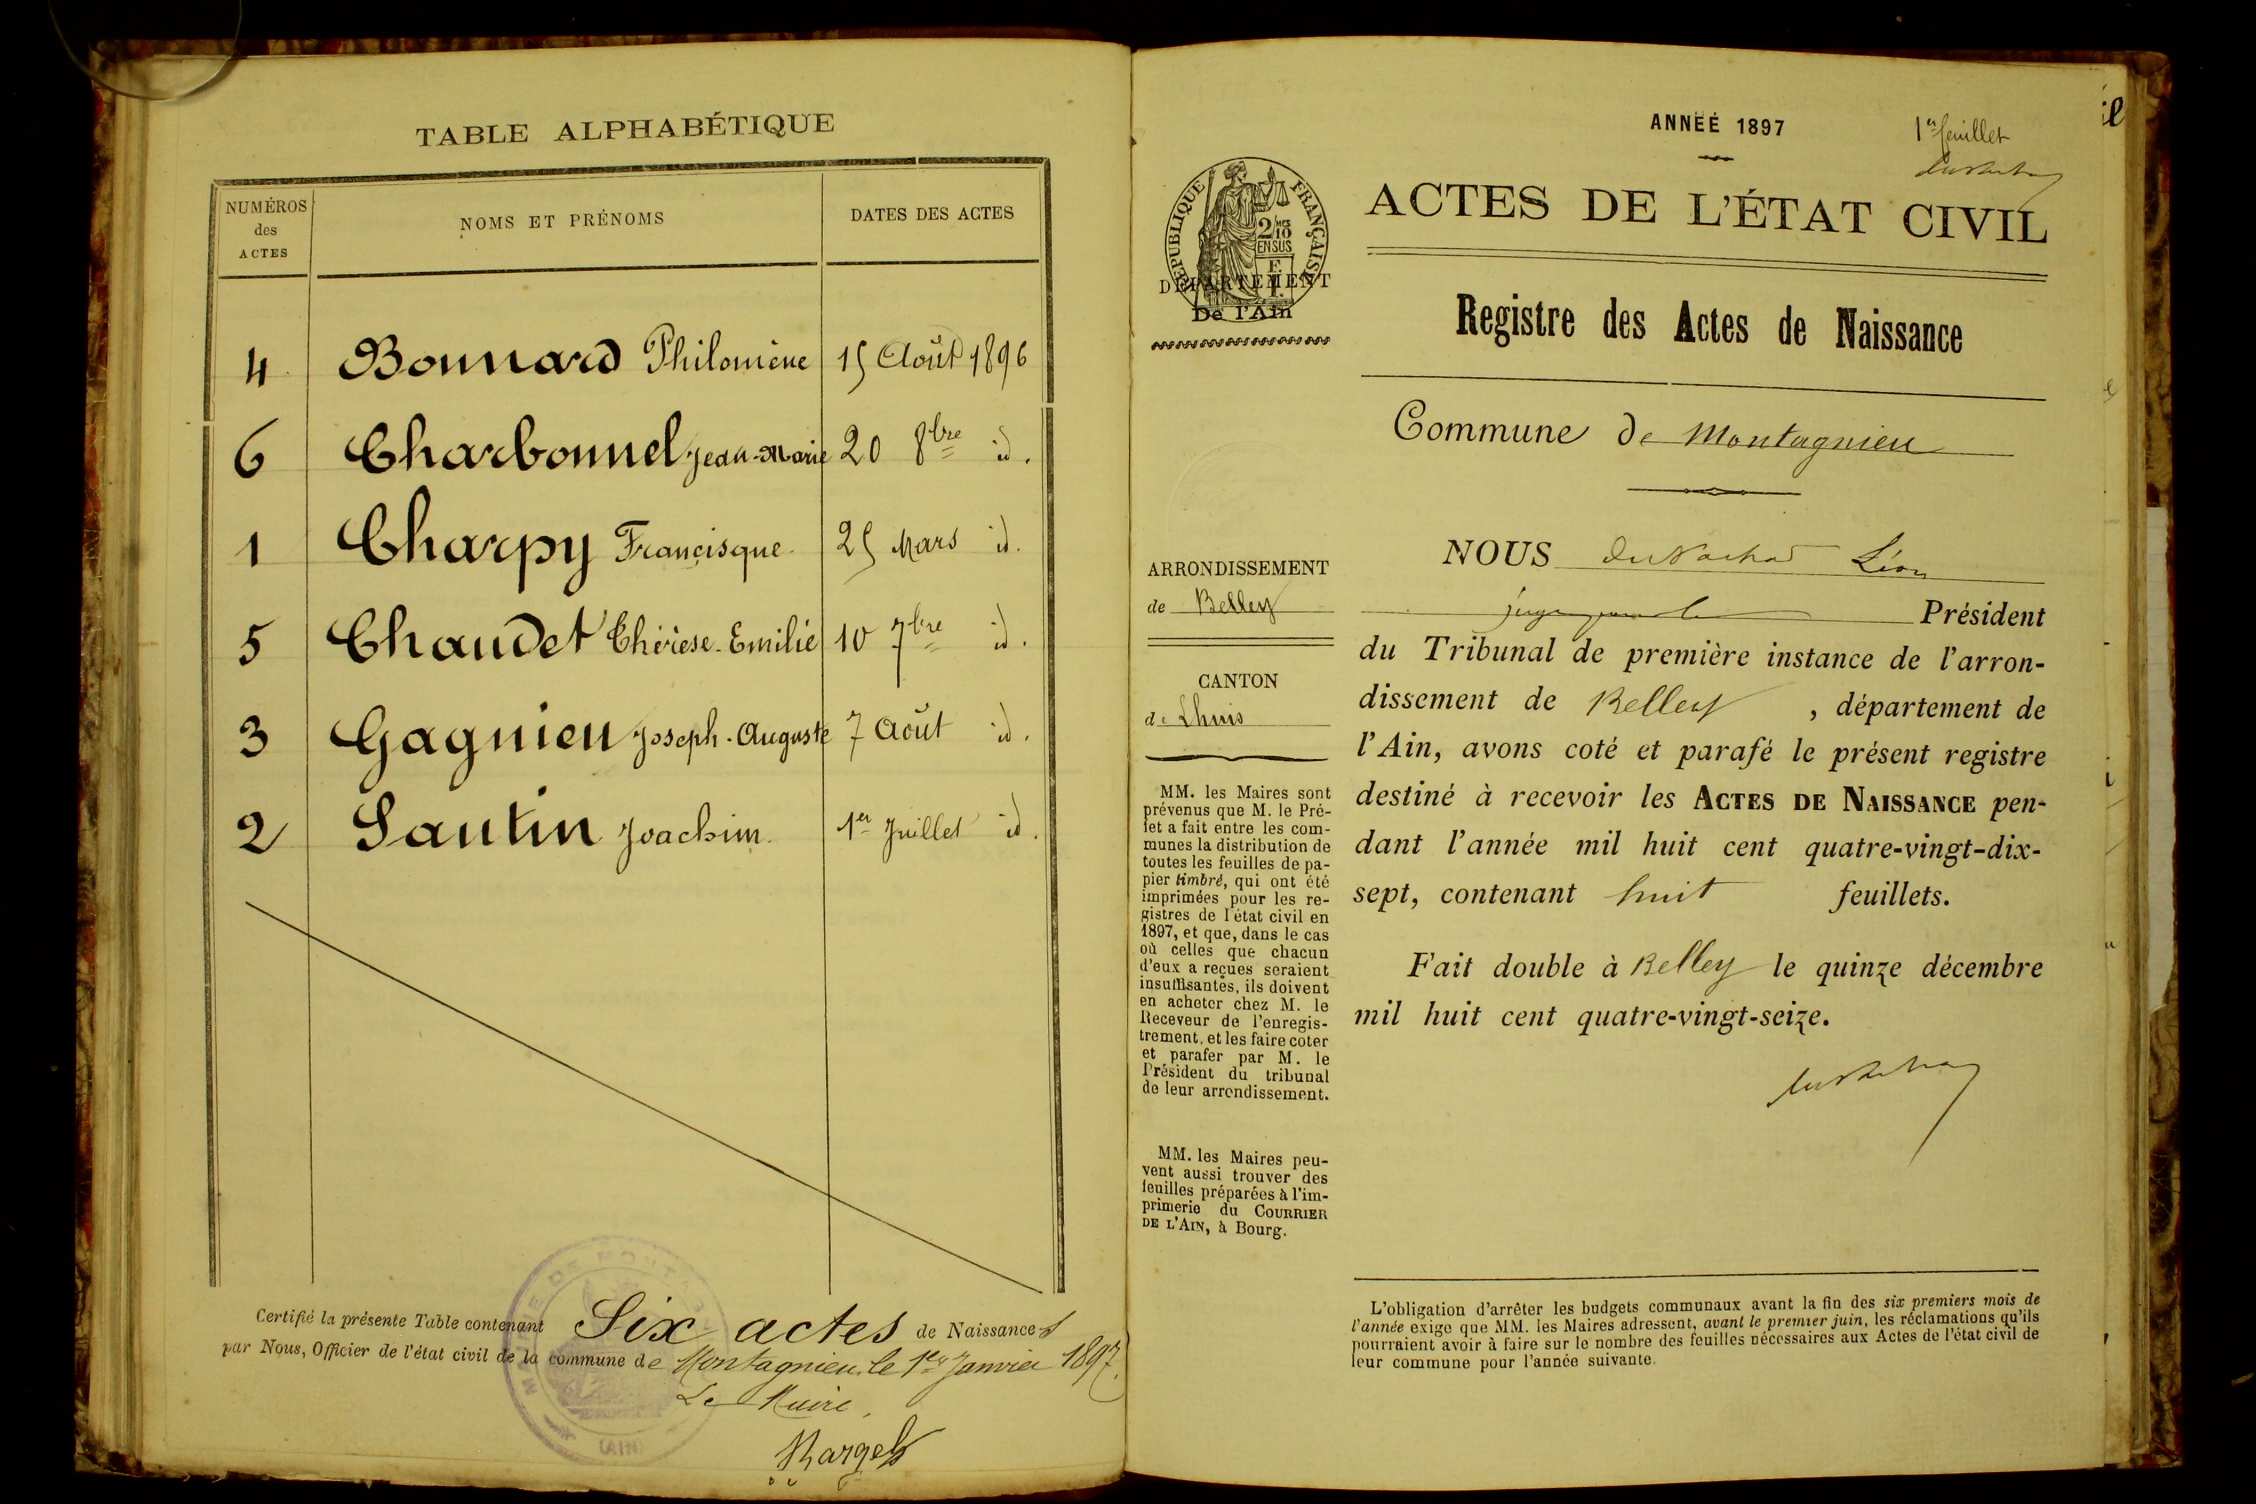 TABLE ALPHABÉTIQUE
NUMÉROS
des
ACTES
NOMS ET PRÉNOMS
DATES DES ACTES
4 Bonnard Philomène 15 Août 1896
6 Charbonnel Jean-Marie 20 8bre id.
1 Charpy Francisque 25 Mars id.
5 Chaudet Thérèse-Emilie 10 7bre id.
3 Gagnieu Joseph-Auguste 7 Août id.
2 Santin Joachim 1er Juillet id.
Certifié la présente Table contenant Six actes de Naissances
par Nous, Officier de l'état civil de la commune de Montagnieu, le 1er Janvier 1897.
Le Maire,
(AIN)
ANNÉE 1897
1er feuillet
RÉPUBLIQUE FRANÇAISE
2/10
EN SUS
DÉPARTEMENT
De l'Ain
ACTES DE L'ÉTAT CIVIL
Registre des Actes de Naissance
Commune de Montagnieu
ARRONDISSEMENT
de Belley
CANTON
de Lhuis
MM. les Maires sont
prévenus que M. le Pré-
fet a fait entre les com-
munes la distribution de
toutes les feuilles de pa-
pier timbré, qui ont été
imprimées pour les re-
gistres de l'état civil en
1897, et que, dans le cas
où celles que chacun
d'eux a reçues seraient
insuffisantes, ils doivent
en acheter chez M. le
Receveur de l'enregis-
trement, et les faire coter
et parafer par M. le
Président du tribunal
de leur arrondissement.
MM. les Maires peu-
vent aussi trouver des
feuilles préparées à l'im-
primerie du COURRIER
DE L'AIN, à Bourg.
NOUS Léon
Président
du Tribunal de première instance de l'arron-
dissement de Belley, département de
l'Ain, avons coté et parafé le présent registre
destiné à recevoir les ACTES DE NAISSANCE pen-
dant l'année mil huit cent quatre-vingt-dix-
sept, contenant huit feuillets.
Fait double à Belley le quinze décembre
mil huit cent quatre-vingt-seize.
L'obligation d'arrêter les budgets communaux avant la fin des six premiers mois de
l'année exige que MM. les Maires adressent, avant le premier juin, les réclamations qu'ils
pourraient avoir à faire sur le nombre des feuilles nécessaires aux Actes de l'état civil de
leur commune pour l'année suivante.